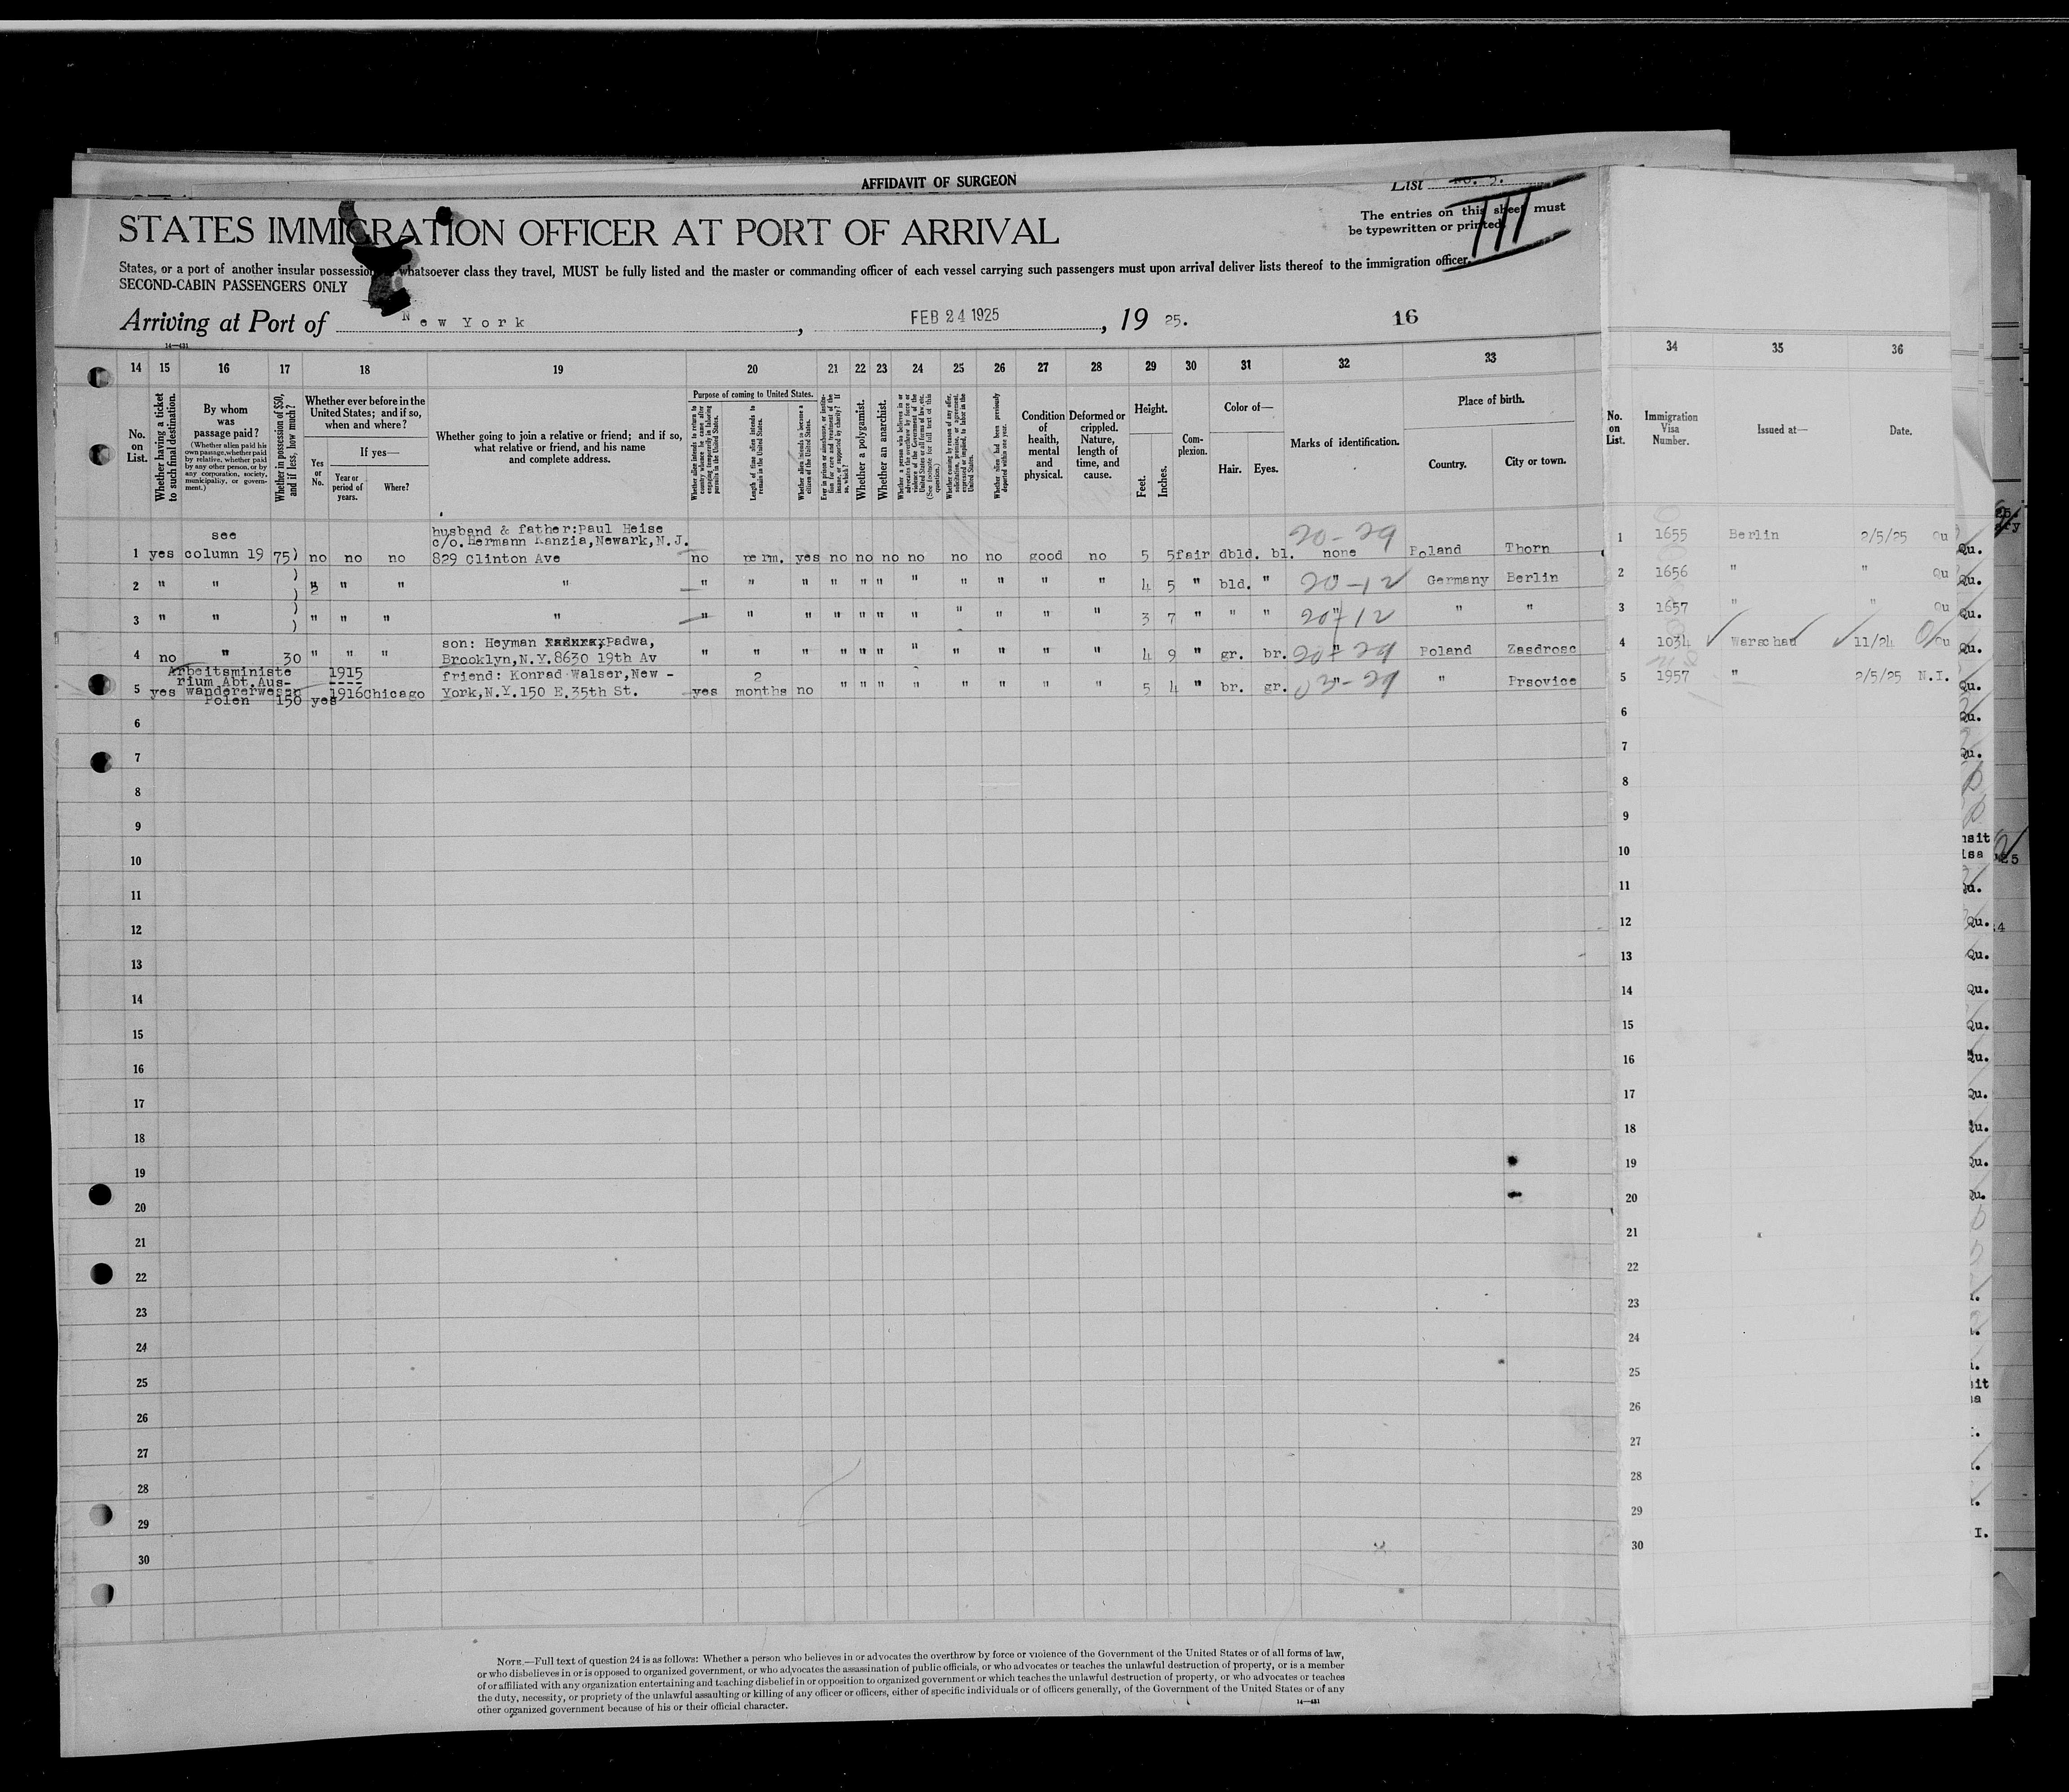 AFFIDAVIT OF SURGEON
List
STATES IMMIGRATION OFFICER AT PORT OF ARRIVAL
The entries on this sheet must
be typewritten or printed.
III
States, or a port of another insular possession whatsoever class they travel, MUST be fully listed and the master or commanding officer of each vessel carrying such passengers must upon arrival deliver lists thereof to the immigration officer.
SECOND-CABIN PASSENGERS ONLY
Arriving at Port of New York, FEB 24 1925, 19 25. 16
14—431
14 15 16 17 18 19 20 21 22 23 24 25 26 27 28 29 30 31 32 33 34 35 36
No. on List.
Whether having a ticket to such final destination.
By whom was passage paid?
(Whether alien paid his own passage, whether paid by relative, whether paid by any other person, or by any corporation, society, municipality, or government.)
Whether in possession of $50, and if less, how much?
Whether ever before in the United States; and if so, when and where?
Yes or No.
If yes—
Year or period of years.
Where?
Whether going to join a relative or friend; and if so, what relative or friend, and his name and complete address.
Purpose of coming to United States.
Whether alien intends to return to country whence he came after engaging temporarily in laboring pursuits in the United States.
Length of time alien intends to remain in the United States.
Whether alien intends to become a citizen of the United States.
Ever in prison or almshouse, or institution for care and treatment of the insane, or supported by charity? If so, which?
Whether a polygamist.
Whether an anarchist.
Whether a person who believes in or advocates the overthrow by force or violence of the Government of the United States or all forms of law, etc. (See footnote for full text of this question.)
Whether coming by reason of any offer, solicitation, promise, or agreement, expressed or implied, to labor in the United States.
Whether alien had been previously deported within one year.
Condition of health, mental and physical.
Deformed or crippled. Nature, length of time, and cause.
Height.
Feet.
Inches.
Complexion.
Color of—
Hair.
Eyes.
Marks of identification.
Place of birth.
Country.
City or town.
No. on List.
Immigration Visa Number.
Issued at—
Date.
see husband & father:Paul Heise 20-29
c/o. Hermann Kanzia,Newark,N.J.
1 yes column 19 75) no no no 829 Clinton Ave no perm. yes no no no no no no good no 5 5 fair dbld. bl. none Poland Thorn 1 1655 Berlin 2/5/25 Qu
2 " " ) " " " " " " " " " " " " " " " 4 5 " bld. " 20-12 Germany Berlin 2 1656 " " Qu
3 " " ) " " " " " " " " " " " " " " " 3 7 " " " 20-12 " " 3 1657 " " Qu
son: Heyman Padwa,
4 no " 30 " " " Brooklyn,N.Y.8630 19th Av " " " " " " " " " " " 4 9 " gr. br. 20-29 Poland Zasdrosc 4 1034 Warschau 11/24 Qu
Arbeitsministe 1915 friend: Konrad Walser,New - 2
rium Abt.Aus- ----
5 yes wandererwesen 1916 Chicago York,N.Y.150 E.35th St. yes months no " " " " " " " " 5 4 " br. gr. Prsovice 5 1957 " 2/5/25 N.I.
Polen 150 yes
6 6
7 7
8 8
9 9
10 10
11 11
12 12
13 13
14 14
15 15
16 16
17 17
18 18
19 19
20 20
21 21
22 22
23 23
24 24
25 25
26 26
27 27
28 28
29 29
30 30
NOTE.—Full text of question 24 is as follows: Whether a person who believes in or advocates the overthrow by force or violence of the Government of the United States or of all forms of law,
or who disbelieves in or is opposed to organized government, or who advocates the assassination of public officials, or who advocates or teaches the unlawful destruction of property, or is a member
of or affiliated with any organization entertaining and teaching disbelief in or opposition to organized government or which teaches the unlawful destruction of property, or who advocates or teaches
the duty, necessity, or propriety of the unlawful assaulting or killing of any officer or officers, either of specific individuals or of officers generally, of the Government of the United States or of any
other organized government because of his or their official character.
14—431